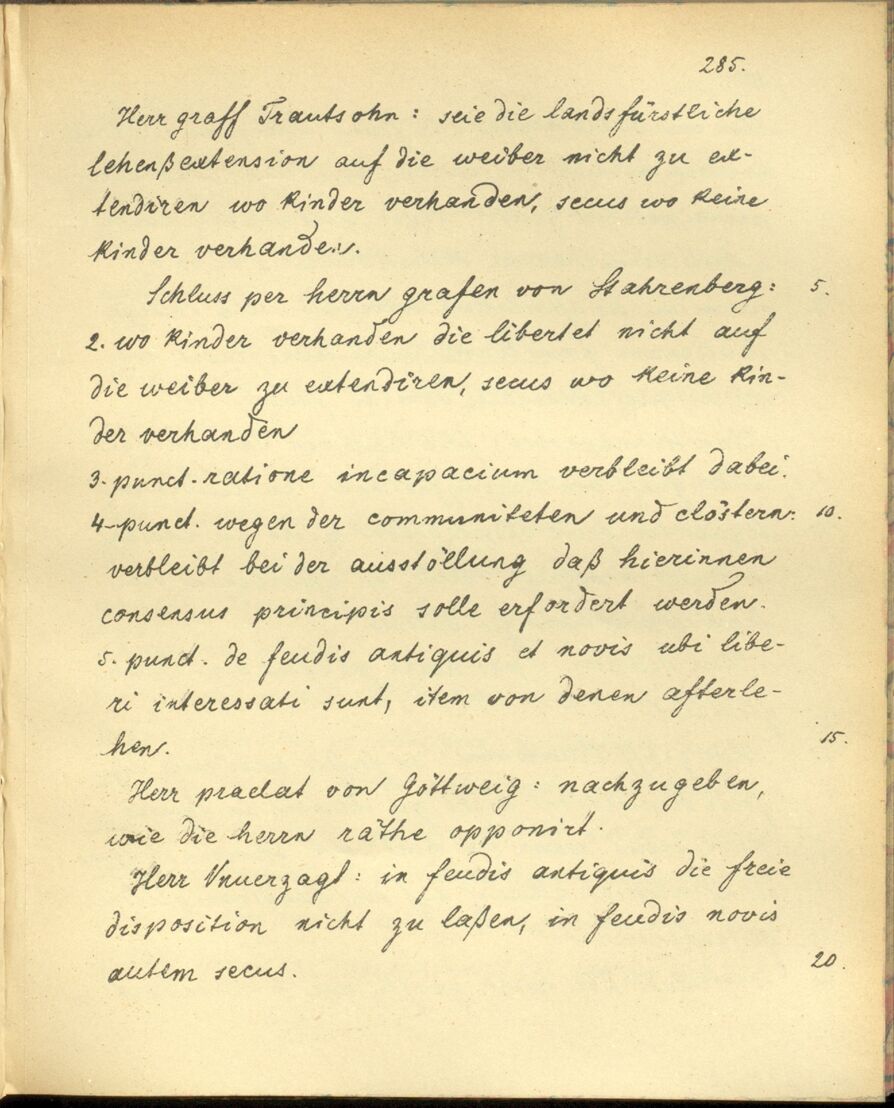 285.
Herr graff Trautsohn: seie die landsfürstliche
lehenßextension auf die weiber nicht zu ex-
tendiren wo kinder verhanden, secus wo keine
kinder verhanden.
Schluss per herrn grafen von Stahrenberg: 5.
2. wo kinder verhanden die libertet nicht auf
die weiber zu extendiren, secus wo keine kin-
der verhanden
3. punct. ratione incapacium verbleibt dabei.
4. punct. wegen der communiteten und clöstern: 10.
verbleibt bei der ausstöllung daß hierinnen
consensus principis solle erfordert werden.
5. punct. de feudis antiquis et novis ubi libe-
ri interessati sunt, item von denen afterle-
hen. 15.
Herr praelat von Göttweig: nachzugeben,
wie die herrn räthe opponirt.
Herr Vnuerzagt: in feudis antiquis die freie
disposition nicht zu laßen, in feudis novis
autem secus. 20.